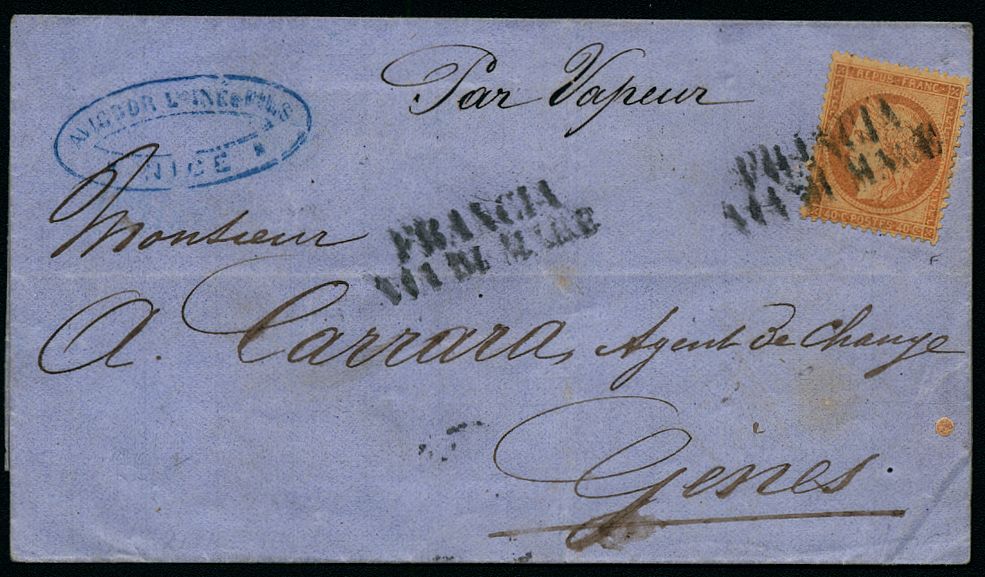 Par Vapeur
AVIGDOR L'AINÉ & FILS
NICE
REPUB. FRANC.
FRANCIA
VIA DI MARE
40 C. POSTES 40 C.
Monsieur
FRANCIA
VIA DI MARE
A. Carrara, Agent de Change
Gênes